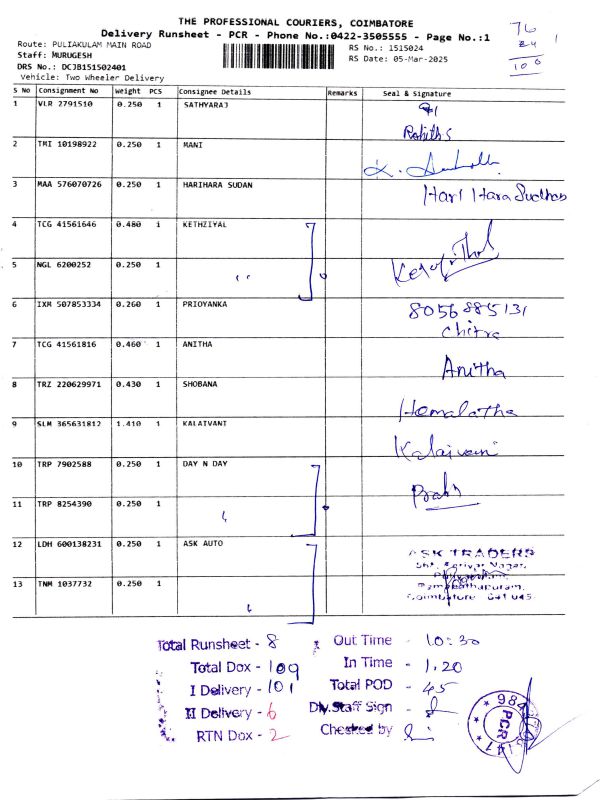 THE PROFESSIONAL COURIERS, COIMBATORE
Delivery Runsheet - PCR - Phone No.:0422-3505555 - Page No.:1
Route: PULIAKULAM MAIN ROAD
RS No.: 1515024
Staff: MURUGESH
RS Date: 05-Mar-2025
DRS No.: DCJB151502401
Vehicle: Two Wheeler Delivery
76
24
100
S No Consignment No Weight PCS Consignee Details Remarks Seal & Signature
1 VLR 2791510 0.250 1 SATHYARAJ
Rohith S
2 TMI 10198922 0.250 1 MANI
3 MAA 576070726 0.250 1 HARIHARA SUDAN Hari Hara Sudhan
4 TCG 41561646 0.480 1 KETHZIYAL
5 NGL 6200252 0.250 1
6 IXM 507853334 0.260 1 PRIOYANKA 8056885131
Chitra
7 TCG 41561816 0.460 1 ANITHA Anitha
8 TRZ 220629971 0.430 1 SHOBANA Hemalatha
9 SLM 365631812 1.410 1 KALAIVANI Kalaivani
10 TRP 7902588 0.250 1 DAY N DAY
11 TRP 8254390 0.250 1
12 LDH 600138231 0.250 1 ASK AUTO ASK TRADERS
13 TNM 1037732 0.250 1
Ramanathapuram,
Coimbatore - 641 045
Total Runsheet - 8 Out Time - 10:30
Total Dox - 109 In Time - 1.20
I Delivery - 101 Total POD - 45
II Delivery - 6 Dly.Staff Sign -
RTN Dox - 2 Checked by
PCR